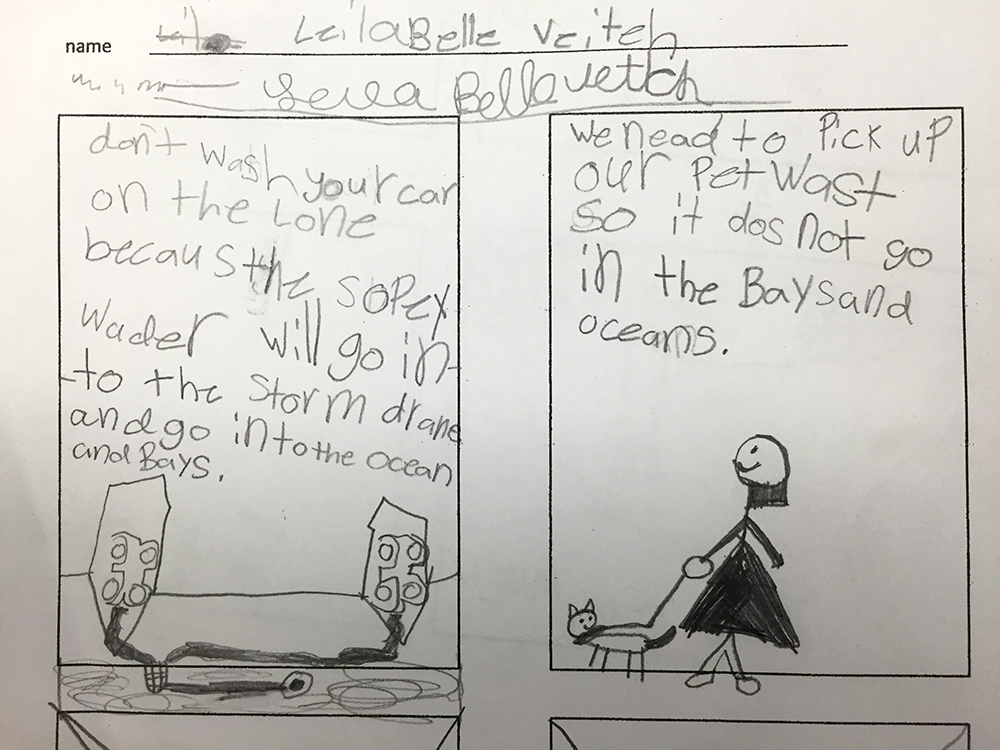 name LeilaBelle Veitch
Leila Belle Veitch
don't wash your car
on the Lone
becausthe sopey
wader will go in-
-to the storm drane
and go into the ocean
and Bays.
we nead to Pick up
our Pet Wast
so it dos not go
in the Baysand
oceans.